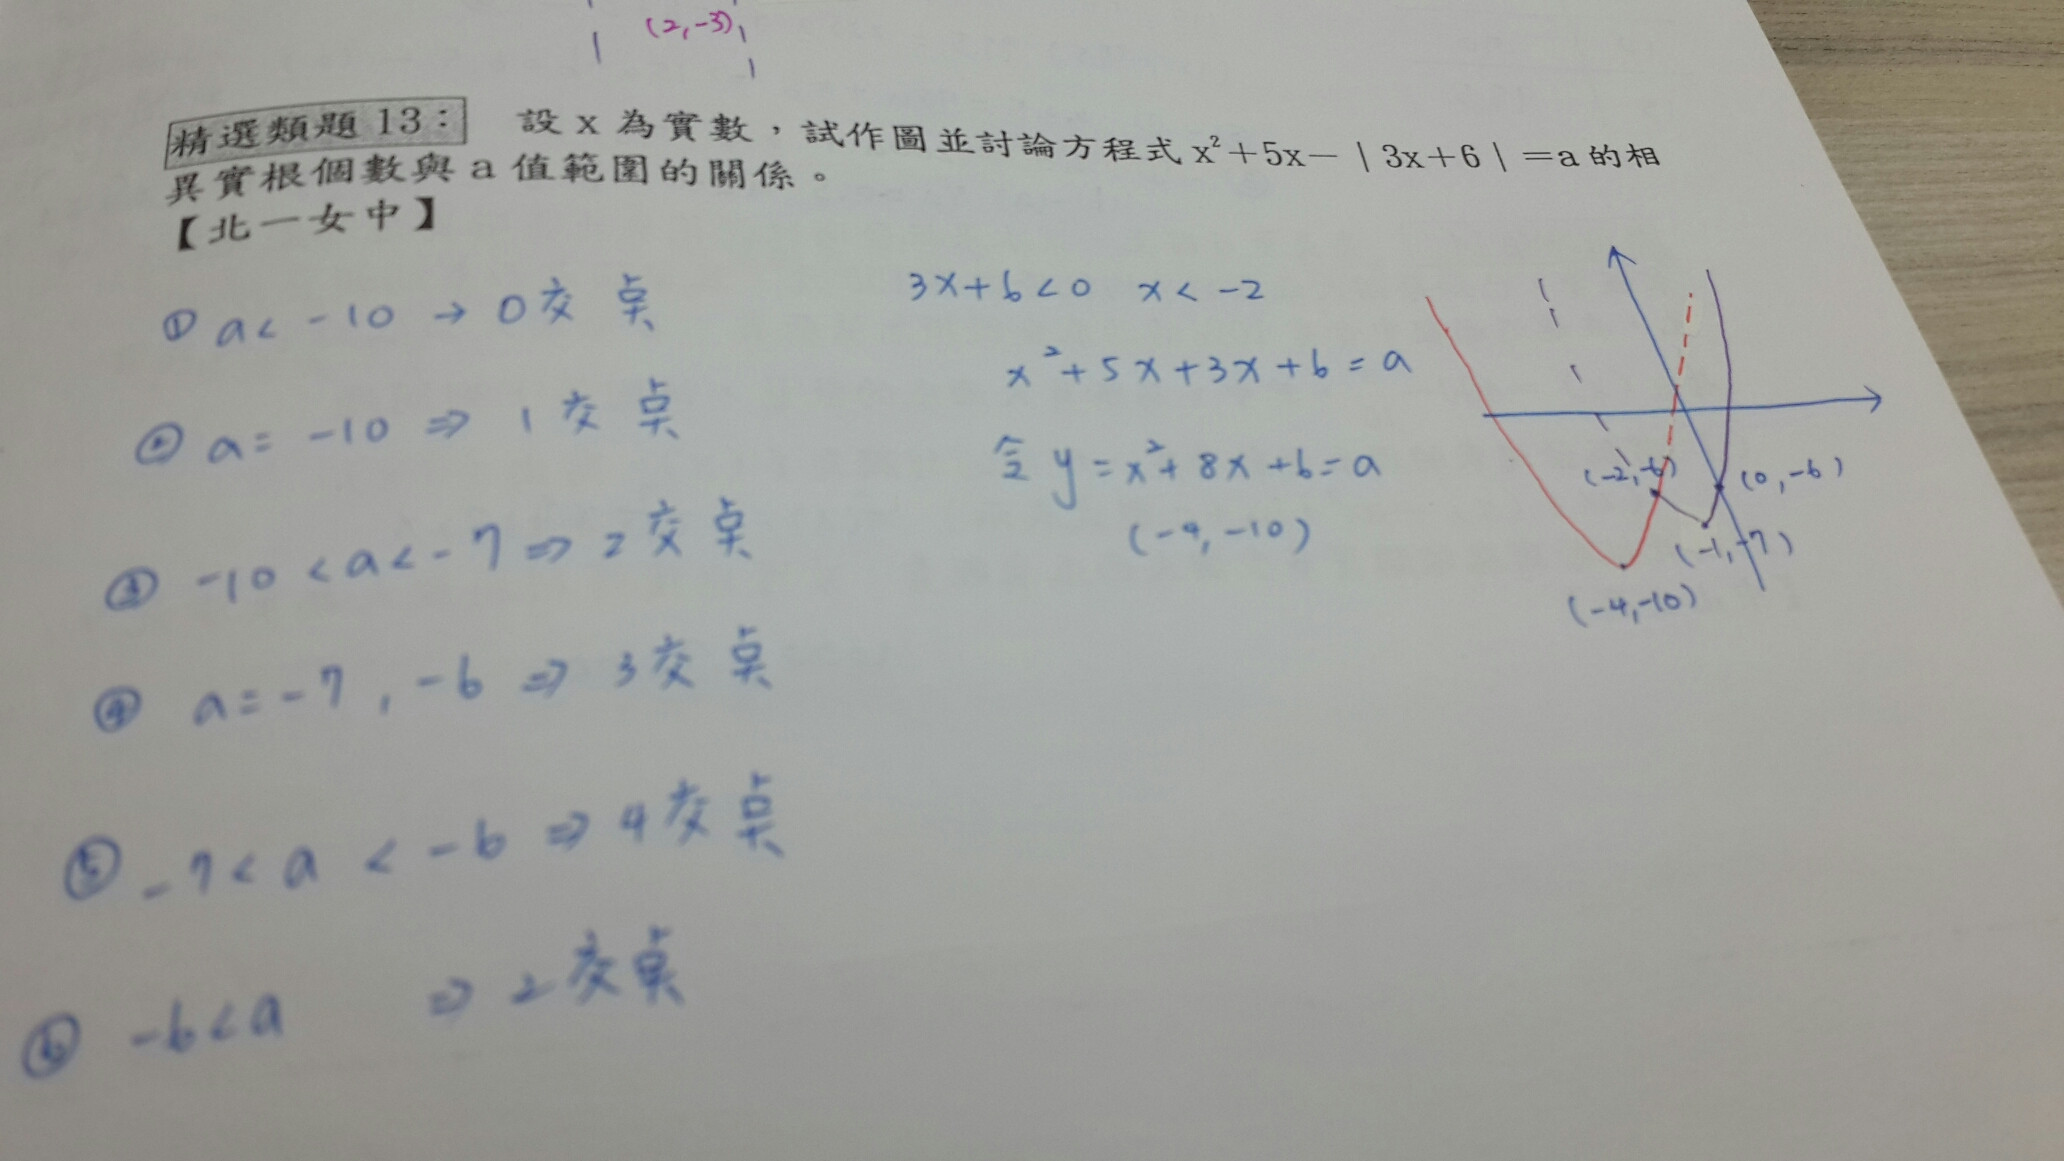 (2,-3)
精選類題13： 設x為實數，試作圖並討論方程式x²+5x-|3x+6|=a的相
異實根個數與a值範圍的關係。
【北一女中】
① a< -10 → 0交點
② a= -10 ⇒ 1交點
③ -10<a<-7 ⇒ 2交點
④ a=-7, -6 ⇒ 3交點
⑤ -7<a<-6 ⇒ 4交點
⑥ -6<a ⇒ 2交點
3x+6<0 x<-2
x²+5x+3x+6=a
令 y=x²+8x+6=a
(-4,-10)
(-2,-6)
(0,-6)
(-1,-7)
(-4,-10)